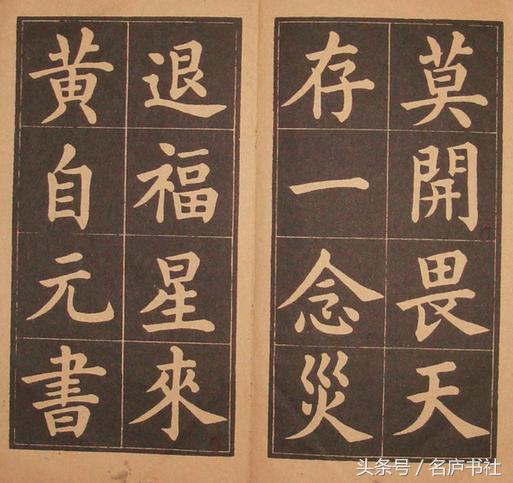 莫開畏天
存一念災
退福星來
黃自元書
头条号／名庐书社